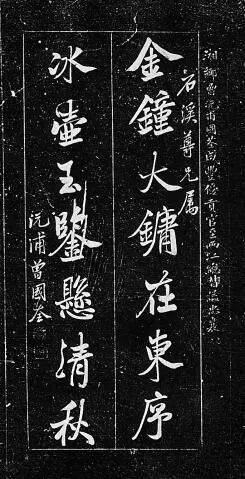 湘鄉曾沅甫國荃由豐優貢官至兩江總督諡忠襄
石溪尊兄屬
金鐘大鏞在東序
冰壺玉鑒懸清秋
沅浦曾國荃